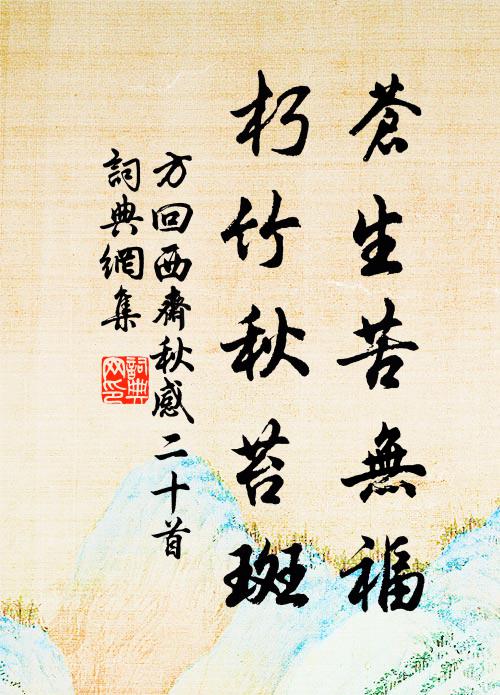 蒼生苦無福
朽竹秋苔斑
方回西齋秋感二十首
詞典網集
詞典網印